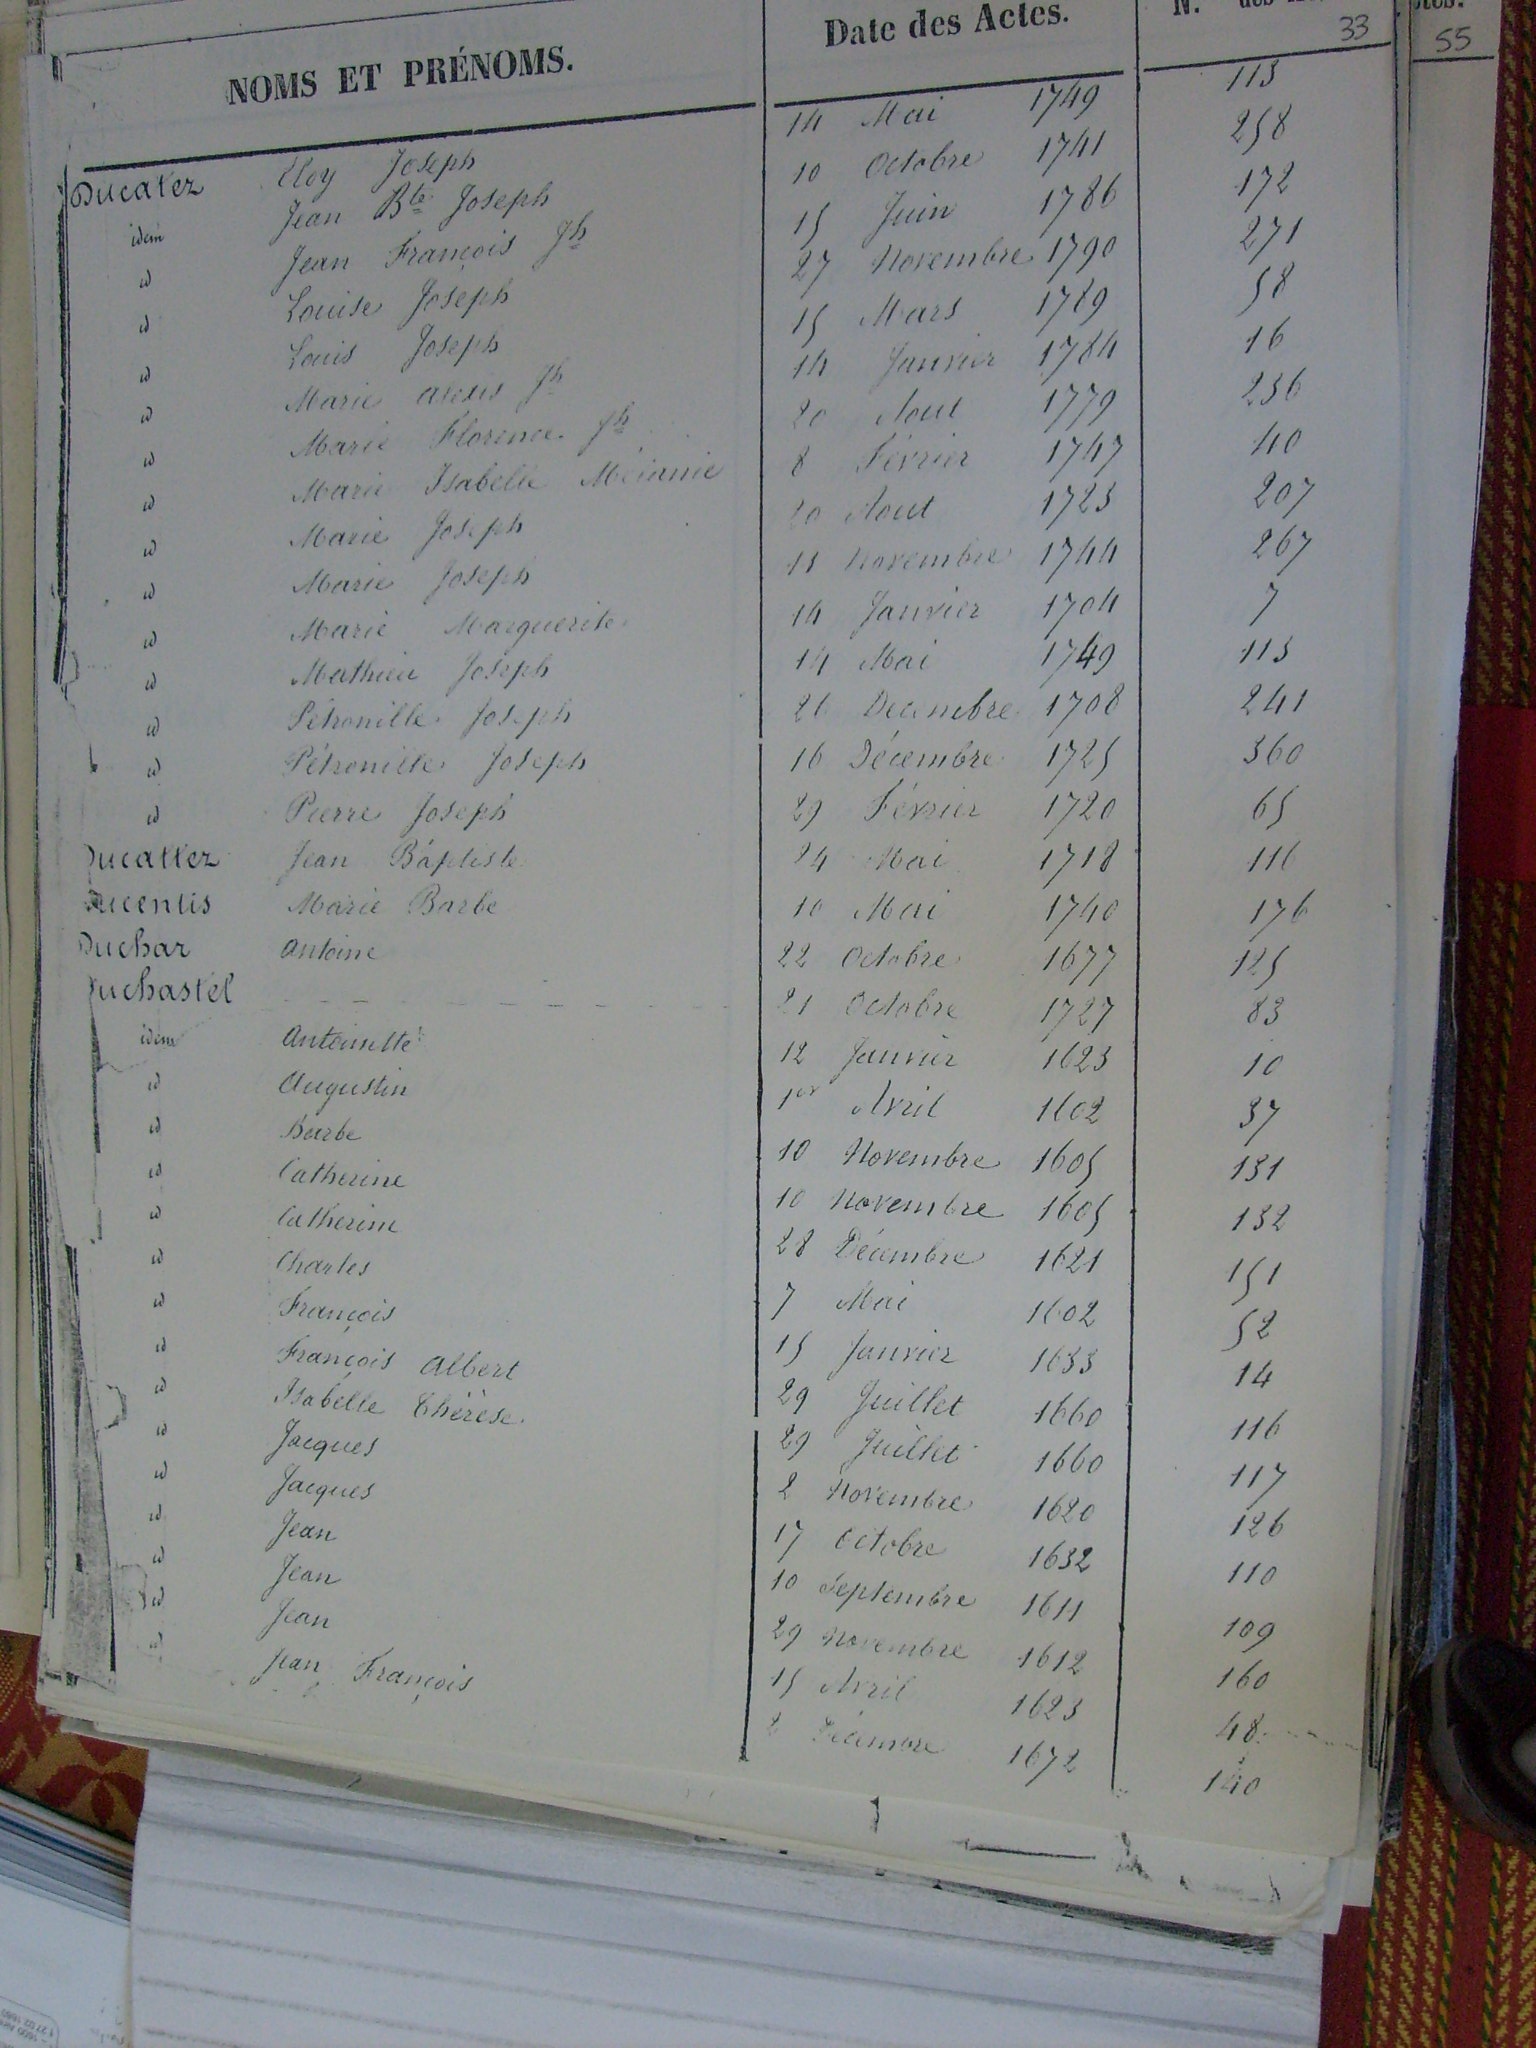 NOMS ET PRÉNOMS. Date des Actes. N.
33 55
Ducatez Eloy Joseph 14 Mai 1749 113
idem Jean Bte Joseph 10 Octobre 1741 258
id Jean François Jh 15 Juin 1786 172
id Louise Joseph 27 Novembre 1790 271
id Louis Joseph 15 Mars 1789 58
id Marie Alexis Jh 14 Janvier 1784 16
id Marie Florence Jh 20 Aout 1779 236
id Marie Isabelle Mélanie 8 Février 1747 40
id Marie Joseph 20 Aout 1723 207
id Marie Joseph 11 Novembre 1744 267
id Marie Marguerite 14 Janvier 1704 7
id Mathieu Joseph 14 Mai 1749 113
id Pétronille Joseph 26 Decembre 1708 241
id Pétronille Joseph 16 Décembre 1725 360
id Pierre Joseph 29 Février 1720 65
Ducattez Jean Baptiste 24 Mai 1718 116
Ducentis Marie Barbe 10 Mai 1740 176
Duchar Antoine 22 Octobre 1677 125
Duchastel 21 Octobre 1727 83
idem Antoinette 12 Janvier 1623 10
id Augustin 1er Avril 1602 37
id Barbe 10 Novembre 1605 131
id Catherine 10 Novembre 1605 132
id Catherine 28 Décembre 1621 151
id Charles 7 Mai 1602 52
id François 15 Janvier 1633 14
id François Albert 29 Juillet 1660 116
id Isabelle Thérèse 29 Juillet 1660 117
id Jacques 2 Novembre 1620 126
id Jacques 17 Octobre 1632 110
id Jean 10 Septembre 1611 109
id Jean 29 Novembre 1612 160
id Jean 15 Avril 1623 48
id Jean François 2 Décembre 1672 140